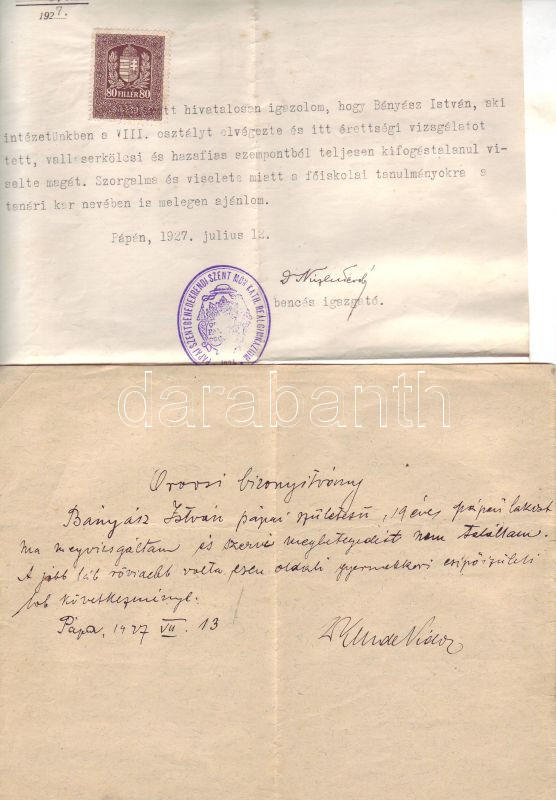 1927.
80 FILLÉR 80
hivatalosan igazolom, hogy Bényász István, aki
intézetünkben a VIII. osztályt elvégezte és itt érettségi vizsgálatot
tett, valláserkölcsi és hazafias szempontból teljesen kifogástalanul vi-
selte magát. Szorgalma és viselete miatt a főiskolai tanulmányokra a
tanári kar nevében is melegen ajánlom.
Pápán, 1927. július 12.
bencés igazgató.
PÁPAI SZENTBENEDEKRENDI SZENT MÓR KATH. REÁLGIMNÁZIUM
darabanth
Orvosi bizonyítvány
Bányász István pápai születésű, 19 éves pápai lakost
ma megvizsgáltam és szervi megbetegedést nem találtam.
A jobb láb rövidebb volta ezen oldali gyermekkori csipőizületi
lob következménye.
Pápa, 1927 VII. 13